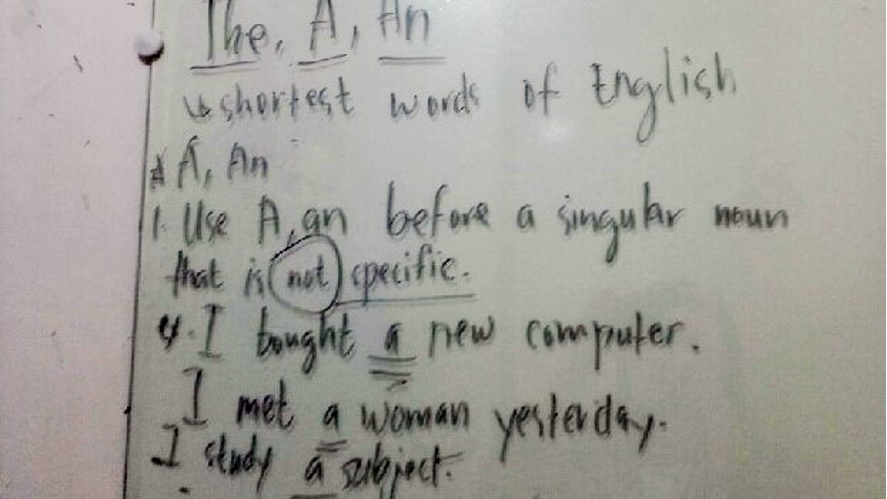 The, A, An
↳ shortest words of English
* A, An
1. Use A, an before a singular noun
that is not specific.
ex. I bought a new computer.
I met a woman yesterday.
I study a subject.